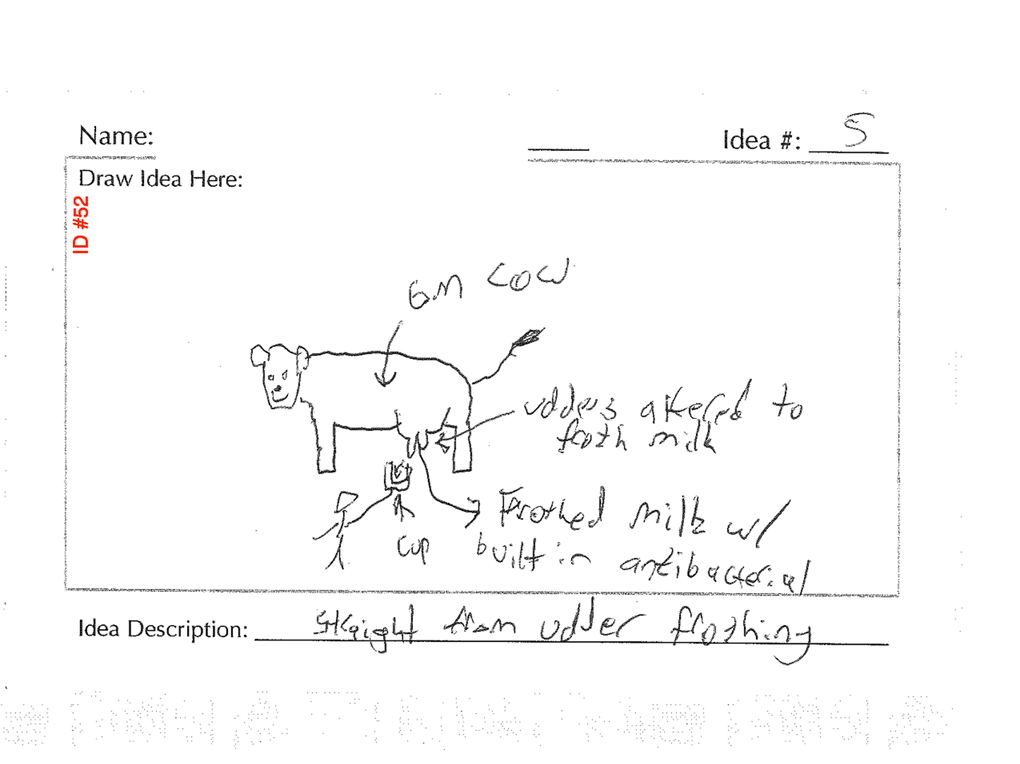 Name:
Idea #: 5
Draw Idea Here:
ID #52
GM COW
udders altered to
froth milk
Frothed milk w/
built in antibacterial
cup
Idea Description: straight from udder frothing